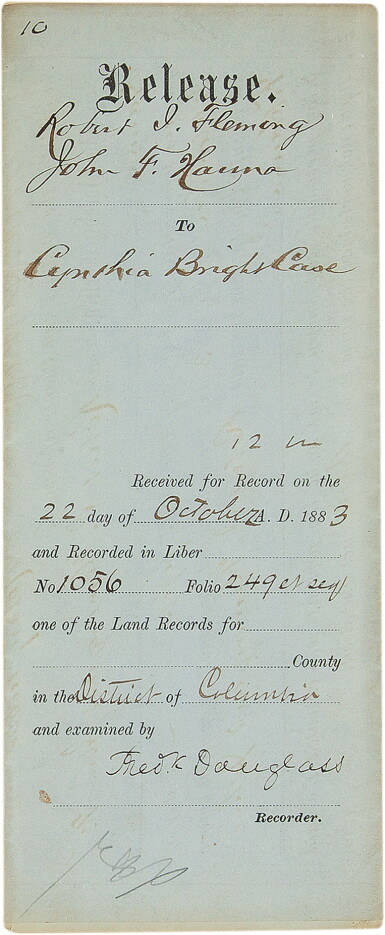 10
Release.
Robert I. Fleming
John F. Hanna
To
Cynthia Bright Case
12 m
Received for Record on the
22 day of October A. D. 1883
and Recorded in Liber
No 1056 Folio 249 et seq
one of the Land Records for
County
in the District of Columbia
and examined by
Fredk Douglass
Recorder.